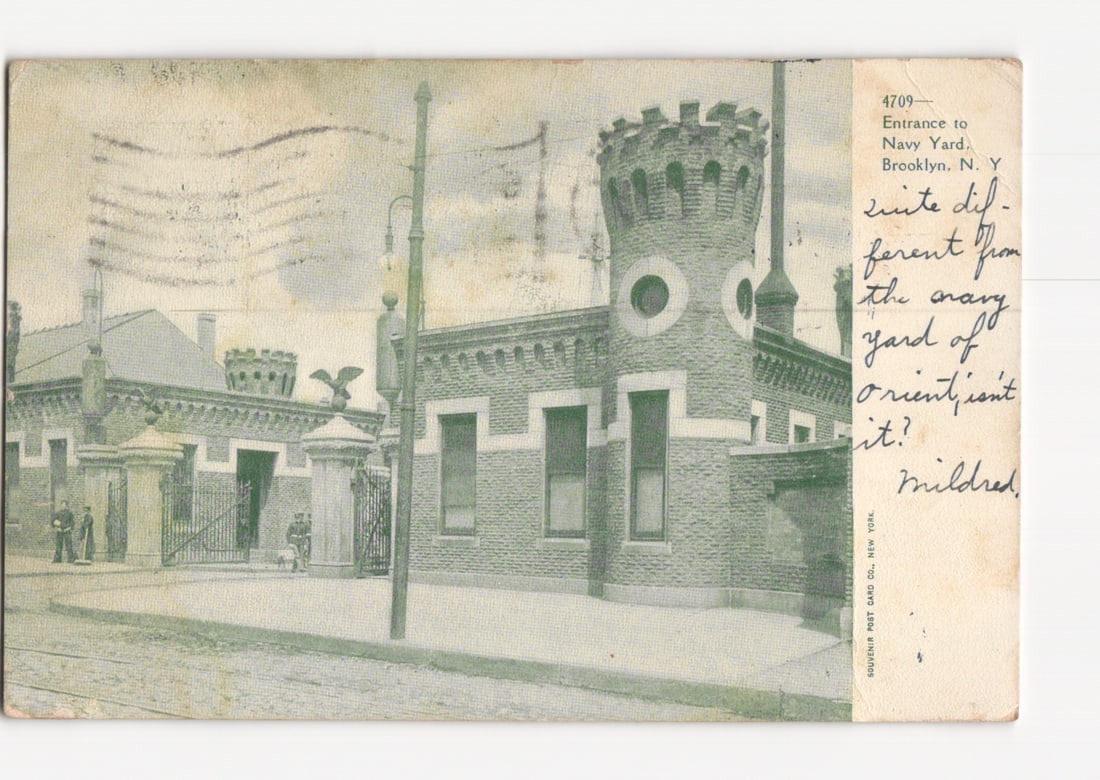 4709—
Entrance to
Navy Yard,
Brooklyn, N. Y
Quite dif-
ferent from
the navy
yard of
orient, isn't
it?
Mildred.
SOUVENIR POST CARD CO., NEW YORK.